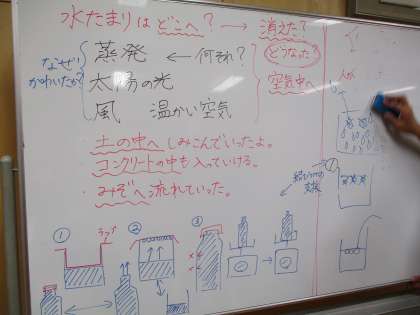 水たまりは どこへ？ → 消えた？
なぜ！
かわいたか？
蒸発 ← 何それ？
太陽の光
風 温かい空気
どうなった？
空気中へ
土の中へ しみこんでいったよ。
コンクリートの中も入っていける。
みぞへ 流れていった。
① ラップ
②
③